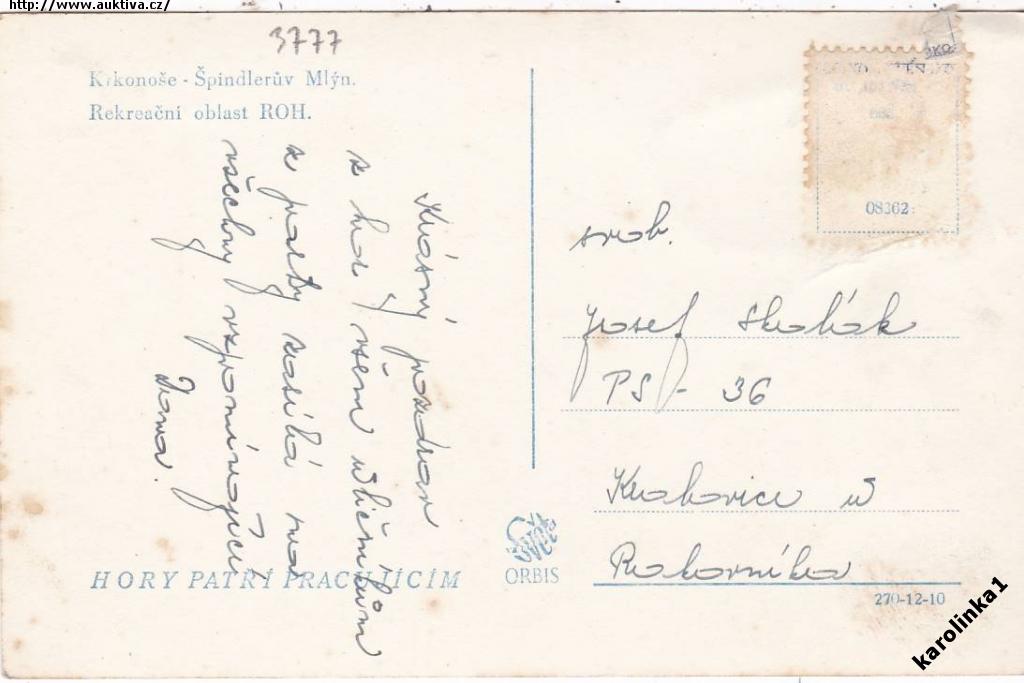 http://www.auktiva.cz/
3777
Krkonoše - Špindlerův Mlýn.
Rekreační oblast ROH.
Krásný pozdrav
z hor všem učičům
z party zasílá na
všechny vzpomínající
Hona.
HORY PATŘÍ PRACUJÍCÍM
ORBIS
3KO
08362
soub.
Josef
PS - 36
Krakovice u
Rakovníka
270-12-10
karolinka1